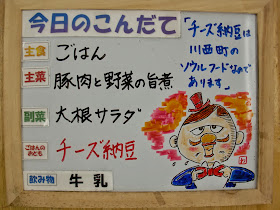 今日のこんだて
主食 ごはん
主菜 豚肉と野菜の旨煮
副菜 大根サラダ
ごはんのおとも チーズ納豆
飲み物 牛乳
「チーズ納豆は
川西町の
ソウルフードなので
あります」